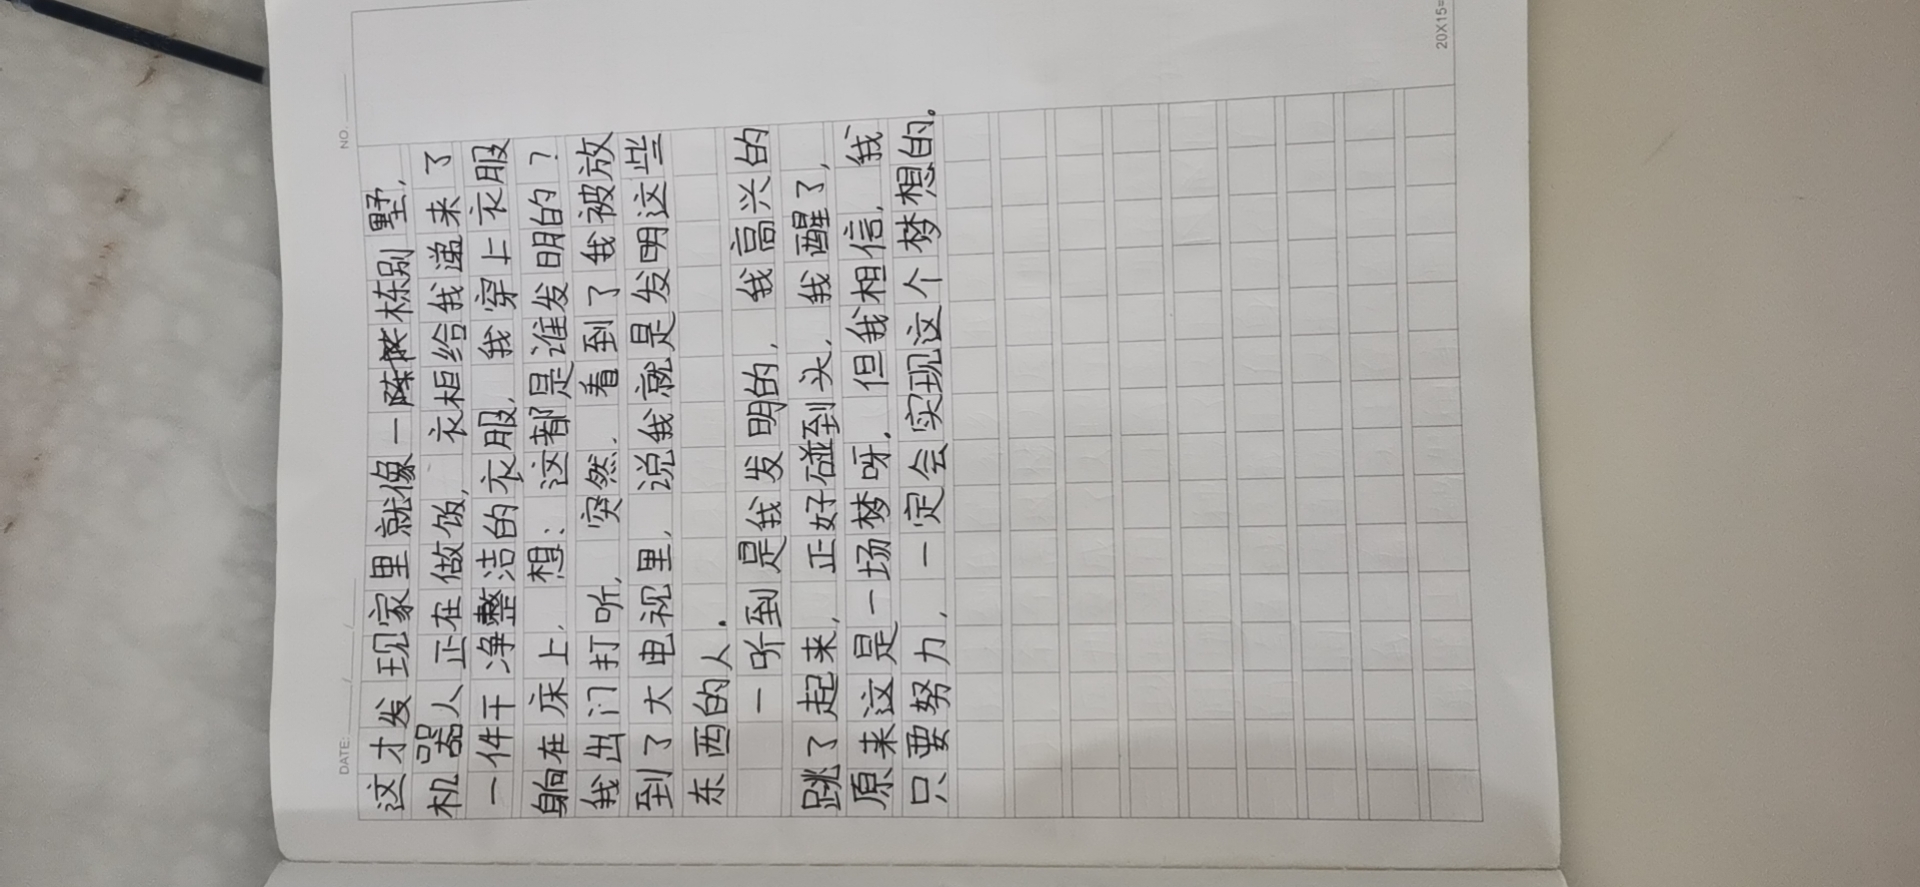 DATE: / /
NO.
这才发现家里就像一栋别墅，
机器人正在做饭，衣柜给我递来了
一件干净整洁的衣服，我穿上衣服
躺在床上，想：这都是谁发明的？
我出门打听，突然，看到了我被放
到了大电视里，说我就是发明这些
东西的人．
一听到是我发明的，我高兴的
跳了起来，正好碰到头，我醒了，
原来这是一场梦呀，但我相信，我
只要努力，一定会实现这个梦想的。
20X15=